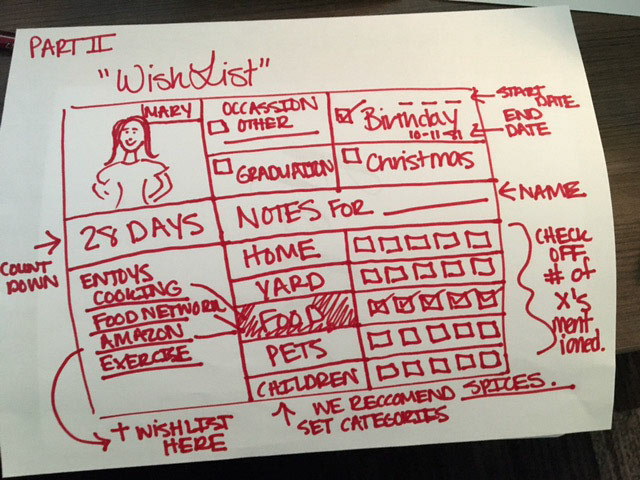 PART II
"WishList"
MARY
OCCASSION
OTHER
Birthday
10-11-81
START DATE
END DATE
GRADUATION
Christmas
28 DAYS
NOTES FOR
NAME
COUNT DOWN
ENJOYS
COOKING
FOOD NETWORK
AMAZON
EXERCISE
HOME
YARD
FOOD
PETS
CHILDREN
CHECK
OFF
# of
X's
ment
ioned.
+ WISHLIST
HERE
WE RECCOMEND SPICES.
SET CATEGORIES